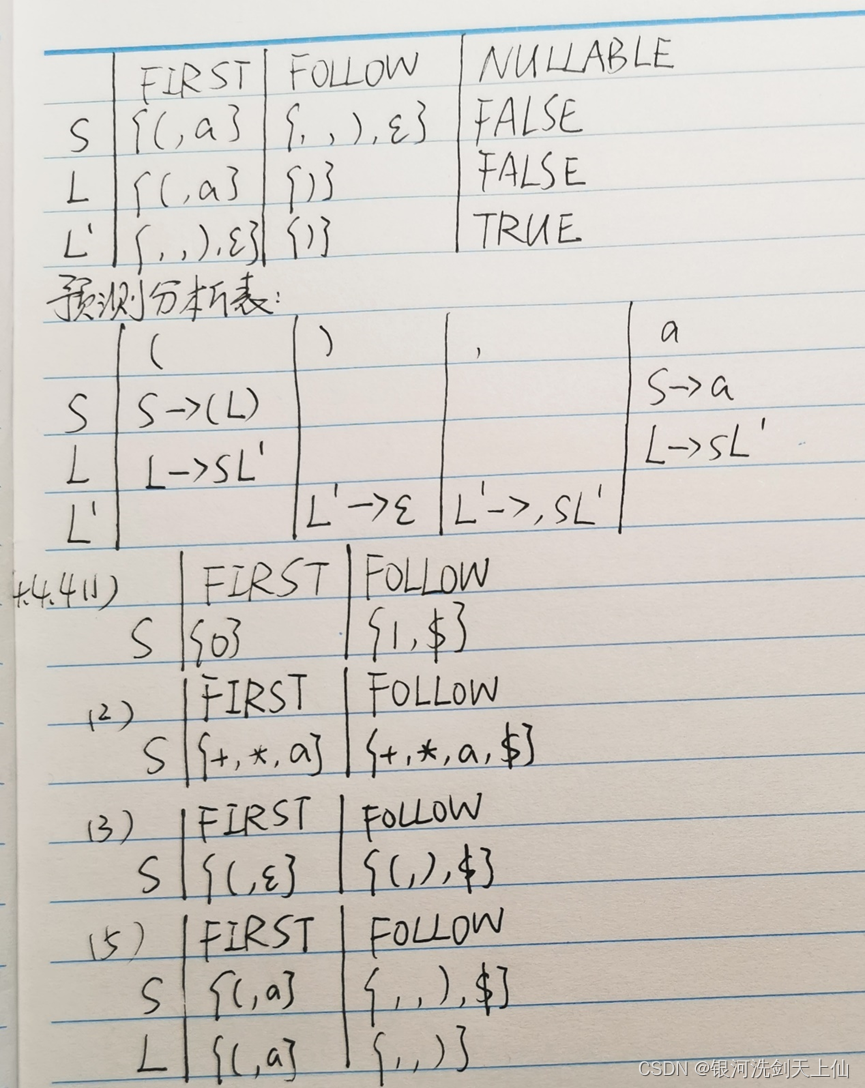 FIRST FOLLOW NULLABLE
S {(,a} {,,),ε} FALSE
L {(,a} {)} FALSE
L' {,,),ε} {)} TRUE
预测分析表:
( ) , a
S S->(L) S->a
L L->SL' L->SL'
L' L'->ε L'->,SL'
4.4.4(1) FIRST FOLLOW
S {0} {1,$}
(2) FIRST FOLLOW
S {+,*,a} {+,*,a,$}
(3) FIRST FOLLOW
S {(,ε} {(,),$}
(5) FIRST FOLLOW
S {(,a} {,,),$}
L {(,a} {,,)}
CSDN @银河洗剑天上仙